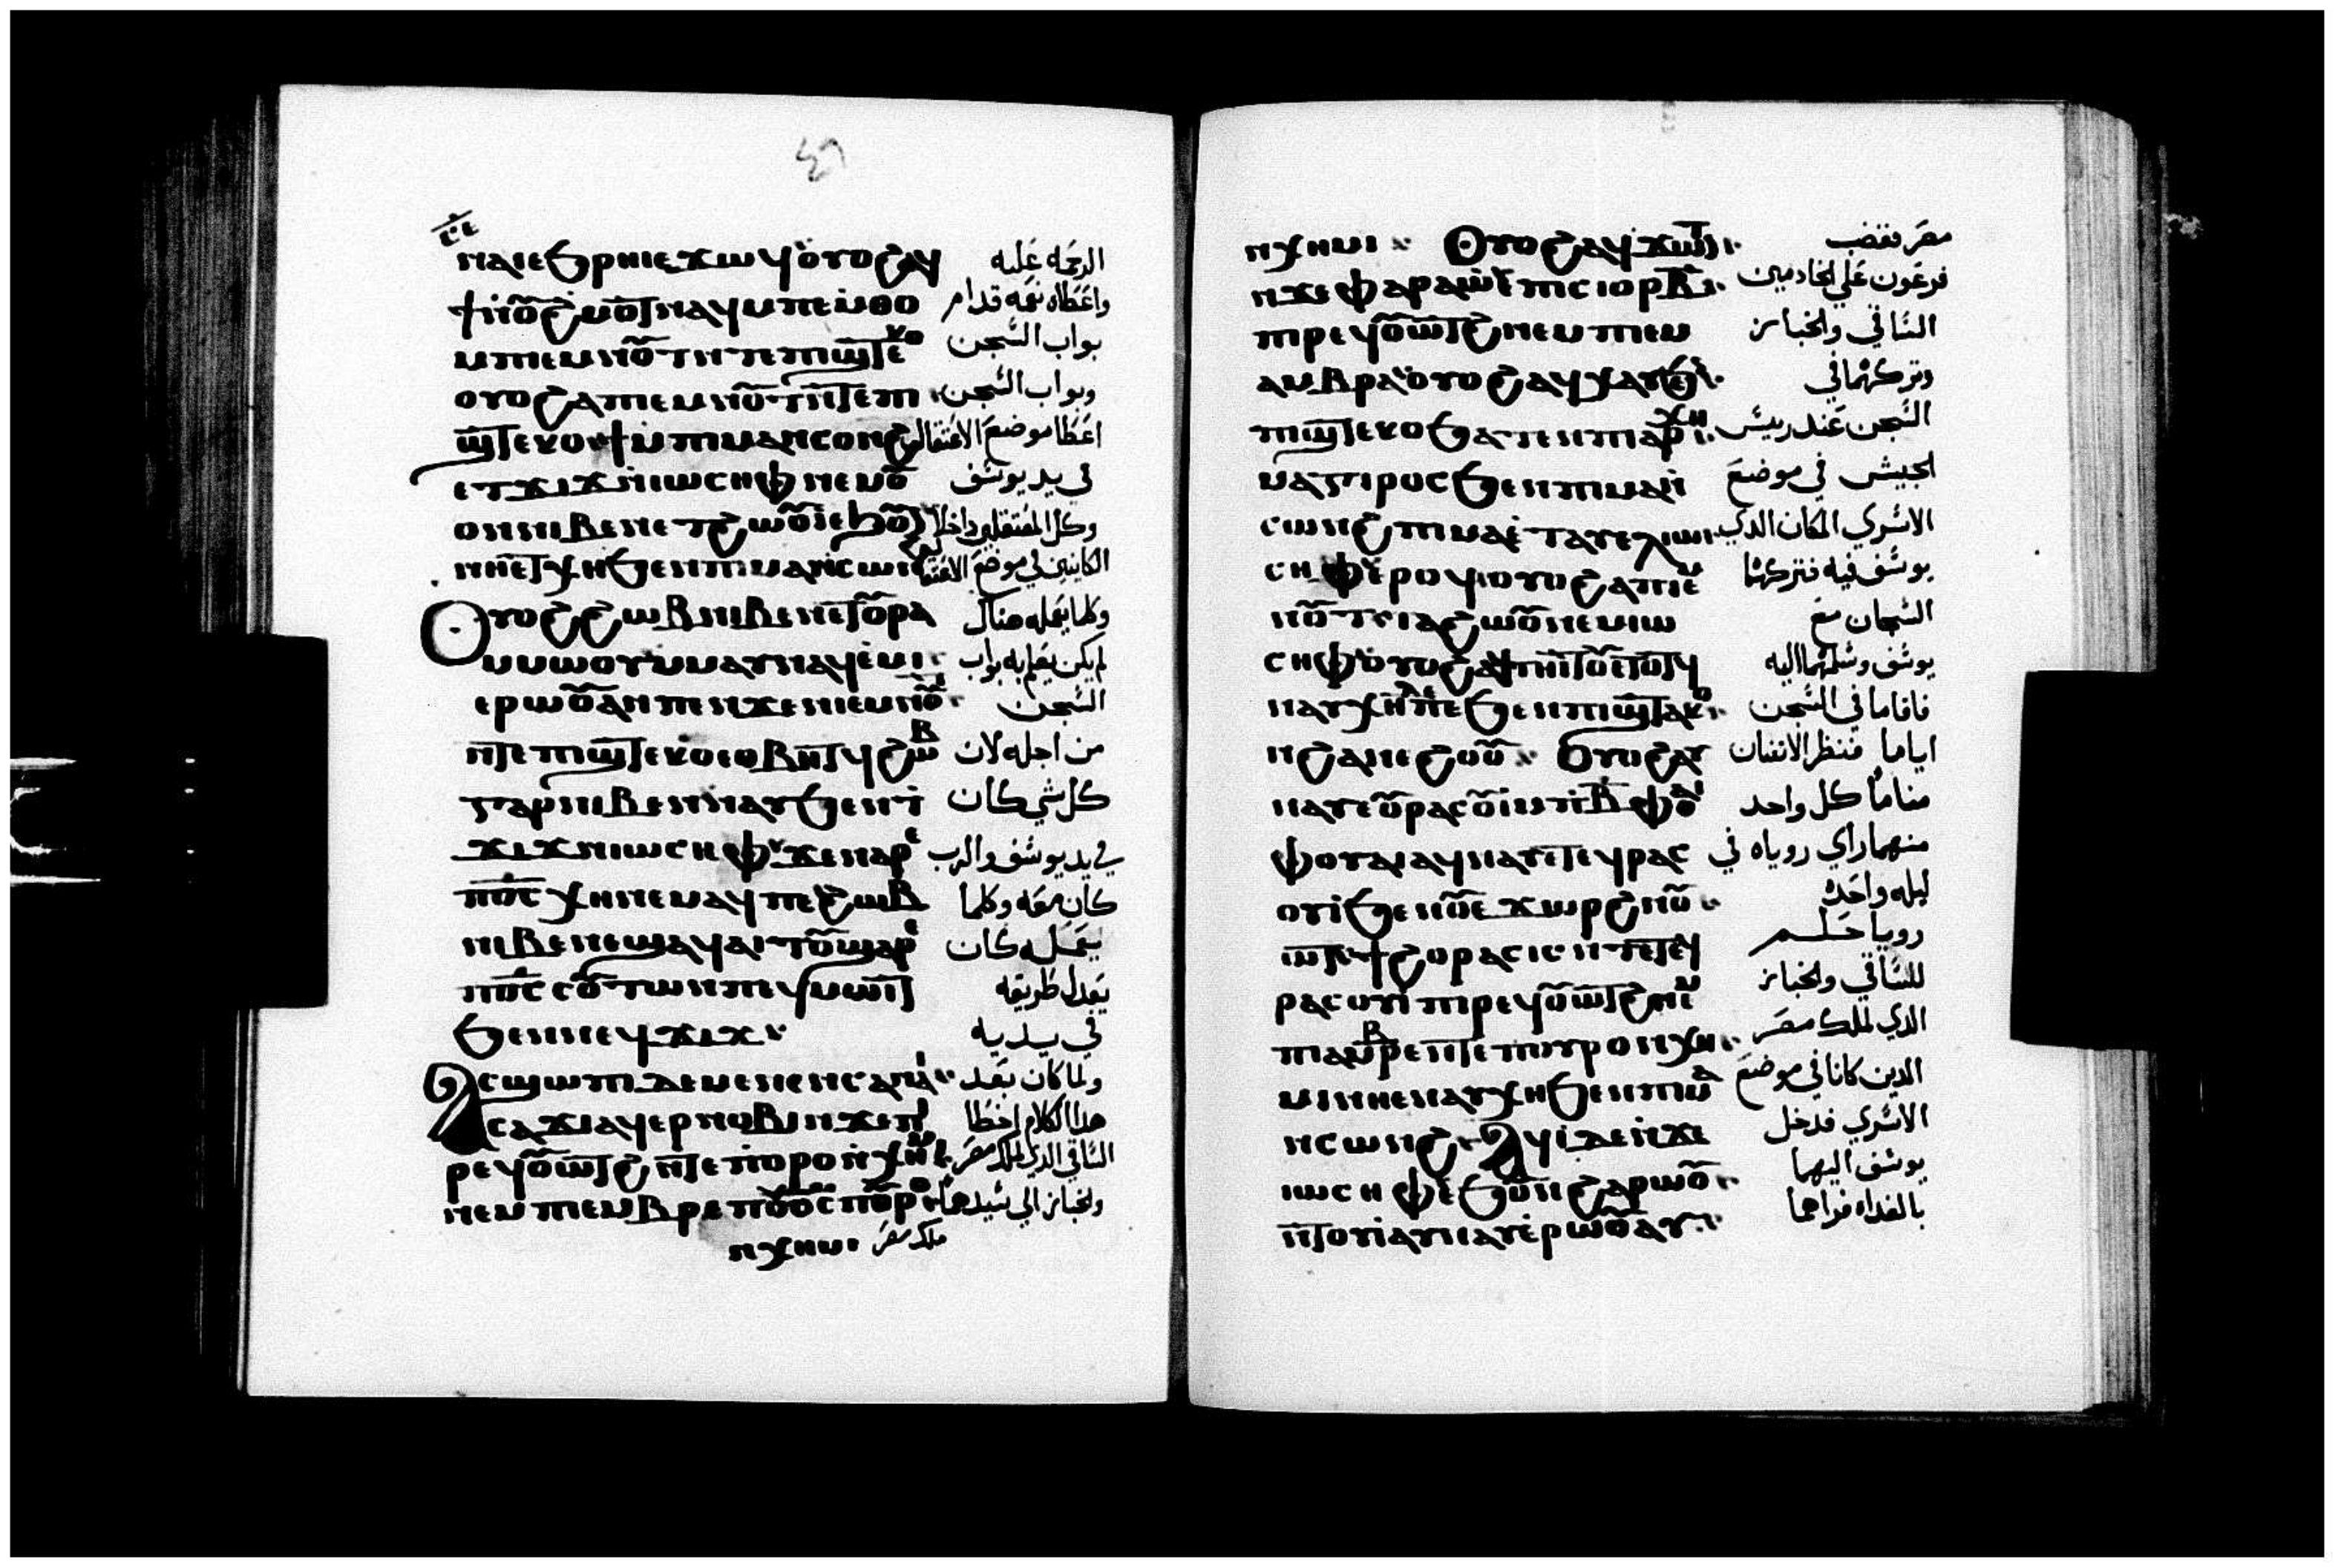 ⲛⲁⲓ ⲉϧⲣⲏⲓ ⲉϫⲱϥ ⲟⲩⲟϩ ⲁϥ الرحمه عليه
ϯ ⲛⲟⲩϩⲙⲟⲧ ⲛⲁϥ ⲙⲡⲉⲙⲑⲟ واعطاه نعمه قدام
ⲙⲡⲓⲉⲙⲛⲟⲩⲧ ⲛⲧⲉ ⲡⲓϣⲧⲉⲕⲟ بواب السجن
ⲟⲩⲟϩ ⲁ ⲡⲓⲉⲙⲛⲟⲩⲧ ⲛⲧⲉ ⲡⲓ وبواب السجن
ϣⲧⲉⲕⲟ ϯ ⲙⲡⲓⲙⲁⲛⲥⲟⲛϩ اعطا موضع الاعتقال
ⲉⲧϫⲓϫ ⲛⲓⲱⲥⲏⲫ ⲛⲉⲙ ⲟⲩ في يد يوسف
ⲟⲛ ⲛⲓⲃⲉⲛ ⲉⲧϩⲱⲟⲩⲓ ⲉϧⲟⲩⲛ وكل المعتقلين داخلا
ⲛⲏ ⲉⲧⲭⲏ ϧⲉⲛ ⲡⲓⲙⲁⲛⲥⲱⲛϩ الكاينين في موضع الاعتقال
ⲟⲩⲟϩ ϩⲱⲃ ⲛⲓⲃⲉⲛ ⲉⲧⲟⲩⲣⲁ وكلما يعمله هناك
ⲙⲙⲱⲟⲩ ⲙⲙⲁⲩ ⲛⲁϥⲉⲙⲓ لم يكن يعلم به بواب
ⲉⲣⲱⲟⲩ ⲁⲛ ⲡⲉ ⲛϫⲉ ⲡⲓⲉⲙⲛⲟⲩⲧ السجن
ⲛⲧⲉ ⲡⲓϣⲧⲉⲕⲟ ⲉⲑⲃⲏⲧϥ ϩⲱⲃ من اجله لان
ⲅⲁⲣ ⲛⲓⲃⲉⲛ ⲛⲁⲩ ϧⲉⲛ ⲧ كل شي كان
ϫⲓϫ ⲛⲓⲱⲥⲏⲫ ϫⲉ ⲛⲁⲣⲉ في يد يوسف والرب
ⲡⲟⲥ ⲭⲏ ⲛⲉⲙⲁϥ ⲡⲉ ϩⲱⲃ كان معه وكلما
ⲛⲓⲃⲉⲛ ⲉϣⲁϥⲁⲓⲧⲟⲩ ϣⲁⲣⲉ يعمله كان
ⲡⲟⲥ ⲥⲟⲩⲧⲱⲛ ⲡⲉϥⲙⲱⲓⲧ يعدل طريقه
ϧⲉⲛ ⲛⲉϥϫⲓϫ في يديه
ⲁⲥϣⲱⲡⲓ ⲇⲉ ⲙⲉⲛⲉⲛⲥⲁ ⲛⲁⲓ ولما كان بعد
ⲥⲁϫⲓ ⲁϥⲉⲣⲛⲟⲃⲓ ⲛϫⲉ ⲡⲓ هدا الكلام اخطا
ⲣⲉϥⲟⲩⲱⲧϩ ⲛⲧⲉ ⲡⲟⲩⲣⲟ ⲛⲭⲏⲙⲓ الساقي الدي لملك مصر
ⲛⲉⲙ ⲡⲓⲁⲙⲃⲣⲉ ⲡⲟⲩⲟⲥ ⲡⲟⲩⲣⲟ والخباز الي سيدهما
ⲛⲭⲏⲙⲓ ملك مصر
ⲛⲭⲏⲙⲓ ⲟⲩⲟϩ ⲁϥϫⲱⲛⲧ مصر فغضب
ⲛϫⲉ ⲫⲁⲣⲁⲱ ⲉⲡⲓⲥⲓⲟⲩⲣ ⲃ فرعون علي الخادمين
ⲡⲓⲣⲉϥⲟⲩⲱⲧϩ ⲛⲉⲙ ⲡⲓⲉⲙ الساقي والخباز
ⲁⲙⲃⲣⲁ ⲟⲩⲟϩ ⲁϥⲭⲁⲩ ϧⲉⲛ وتركهما في
ⲡⲓϣⲧⲉⲕⲟ ϧⲁⲧⲉⲛ ⲡⲓⲁⲣⲭⲏ السجن عند رييس
ⲙⲁⲅⲓⲣⲟⲥ ϧⲉⲛ ⲡⲓⲙⲁⲛ الجيش في موضع
ⲥⲱⲛϩ ⲡⲓⲙⲁ ⲉⲧⲁⲩⲉⲗ ⲓⲱ الاسري المكان الدي
ⲥⲏⲫ ⲉⲣⲟϥ ⲟⲩⲟϩ ⲁ ⲡⲓⲉⲙ يوسف فيه فتركهما
ⲛⲟⲩⲧ ⲧⲥⲓⲁϩⲱⲟⲩ ⲛⲉⲙ ⲓⲱ السجان مع
ⲥⲏⲫ ⲟⲩⲟϩ ⲁϥⲧⲏⲓⲧⲟⲩ ⲉⲧⲟⲧϥ يوسف وسلمهما اليه
ⲛⲁⲩⲭⲏ ⲇⲉ ⲡⲉ ϧⲉⲛ ⲡⲓϣⲧⲁⲕⲟ فاقاما في السجن
ⲛϩⲁⲛⲉϩⲟⲟⲩ ⲟⲩⲟϩ ⲁⲩ اياما فنظر الاثنان
ⲛⲁⲩ ⲉⲟⲩⲣⲁⲥⲟⲩⲓ ⲙⲡⲓⲃ ⲫⲟⲩⲁⲓ مناما كل واحد
ⲫⲟⲩⲁⲓ ⲁϥⲛⲁⲩ ⲉⲧⲉϥⲣⲁⲥ منهما راي روياه في
ⲟⲩⲓ ϧⲉⲛ ⲟⲩⲉϫⲱⲣϩ ⲛⲟⲩ ليله واحده
ⲱⲧ ϯϩⲟⲣⲁⲥⲓⲥ ⲛⲧⲉ ⲧⲉϥ رويا حلم
ⲣⲁⲥⲟⲩⲓ ⲡⲓⲣⲉϥⲟⲩⲱⲧϩ ⲛⲉⲙ للساقي والخباز
ⲡⲓⲁⲙⲃⲣⲉ ⲛⲧⲉ ⲡⲟⲩⲣⲟ ⲛⲭⲏ الدي لملك مصر
ⲙⲓ ⲛⲏ ⲉⲛⲁⲩⲭⲏ ϧⲉⲛ ⲡⲓⲙⲁ الدين كانا في موضع
ⲛⲥⲱⲛϩ ⲁϥⲓ ⲇⲉ ⲛϫⲉ الاسري فدخل
ⲓⲱⲥⲏⲫ ⲉϧⲟⲩⲛ ϩⲁⲣⲱⲟⲩ يوسف اليهما
ⲛⲧⲟⲟⲩⲓ ⲁϥⲛⲁⲩ ⲉⲣⲱⲟⲩ ⲁⲩ بالغداه فراهما